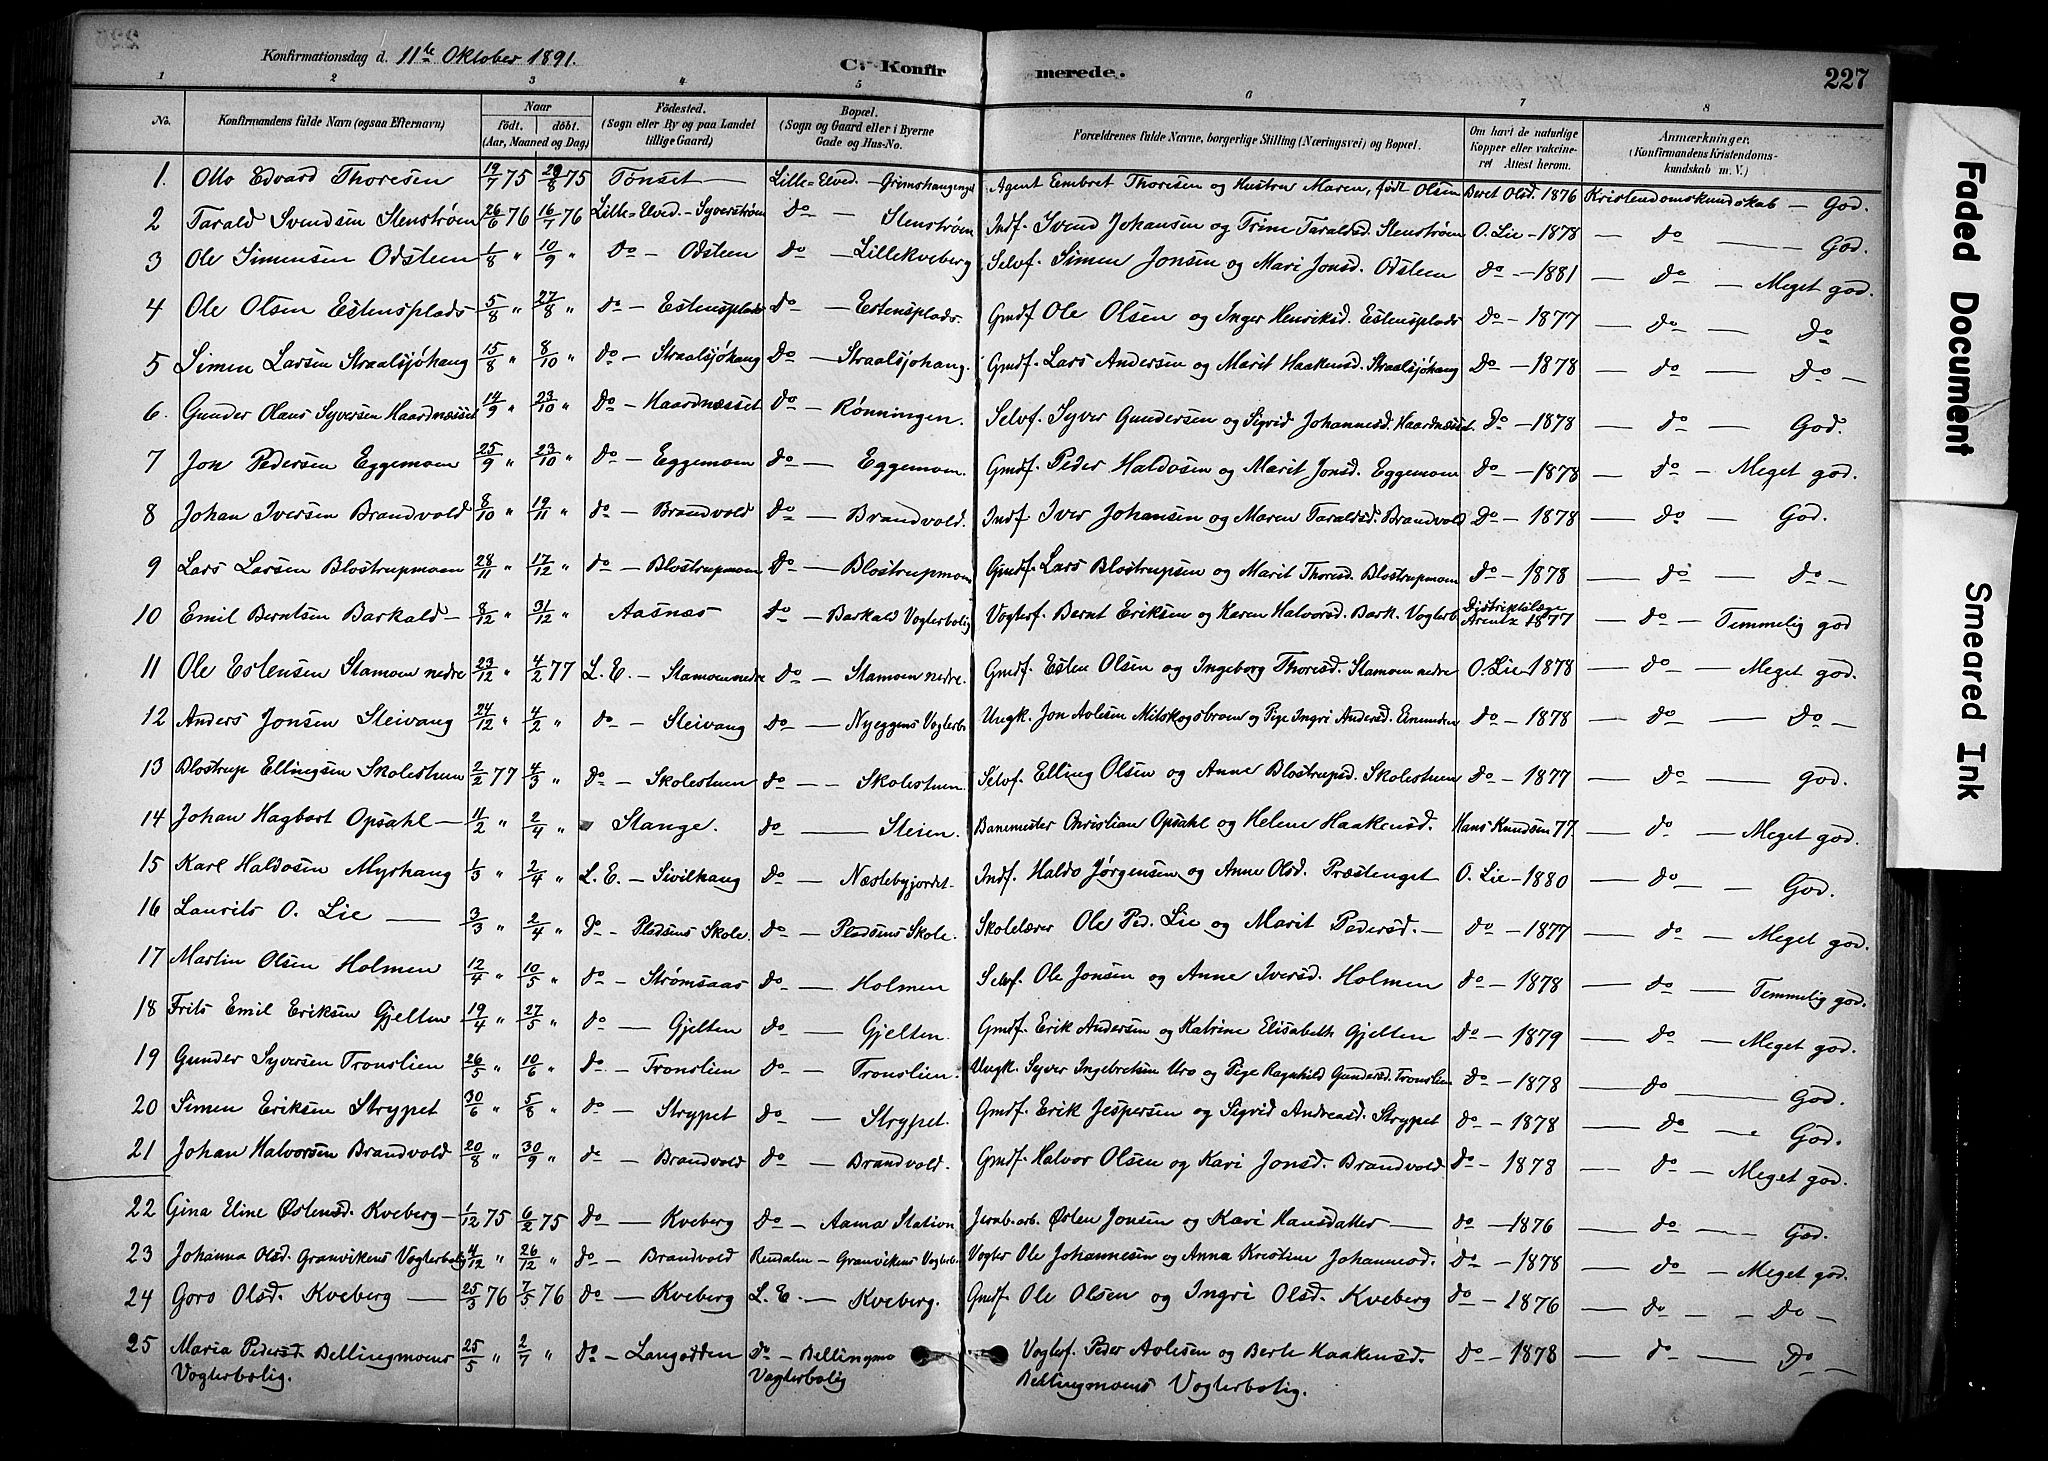 Konfirmationsdag d. 11te Oktober 1891.
C. Konfirmerede.
227
1 2 3 4 5 6 7 8
No. Konfirmandens fulde Navn (ogsaa Efternavn) Naar født. døbt. (Aar, Maaned og Dag) Fødested. (Sogn eller By og paa Landet tillige Gaard) Bopæl. (Sogn og Gaard eller i Byerne Gade og Hus-No. Forældrenes fulde Navne, borgerlige Stilling (Næringsvei) og Bopæl. Om havt de naturlige Kopper eller vakcineret Attest herom. Anmærkninger, (Konfirmandens Kristendomskundskab m. V.)
1. Otto Edvard Thoresen 19/7 75 29/8 75 Tönset — Lille-Elved. — Grimshaugenget Agent Embret Thoresen og Hustru Maren, født Olsen Beret Olsd. 1876 Kristendomskundskab — God.
2 Tarald Svendsen Stenstrøm 26/6 76 16/7 76 Lille-Elved. — Syverstrøm do — Stenstrøm Indf. Svend Johansen og Trine Taraldsd. Stenstrøm O. Lie — 1878 — do — God.
3 Ole Simensen Odsteen 1/8 " 10/9 " do — Odsteen do — Lillekveberg Selvf. Simen Jonsen og Mari Jonsd. Odsteen do — 1881 — do — Meget god.
4 Ole Olsen Estensplads 5/8 " 27/8 " do — Estensplads do — Estensplads. Gmdf Ole Olsen og Inger Henriksd. Estensplads do — 1877 — do — do
5 Simen Larsen Straalsjøhaug 15/8 " 8/10 " do — Straalsjøhaug do — Straalsjøhaug. Gmdf. Lars Andersen og Marit Haakensd. Straalsjøhaug do — 1878 — do — do —
6. Gunder Olaus Syversen Haardnæsset 14/9 " 23/10 " do — Haardnæsset do — Rønningen. Selvf. Syver Gundersen og Sigrid Johannesd. Haardnæsset. do — 1878 — do — God.
7 Jon Pedersen Eggemoen 25/9 " 23/10 " do — Eggemoen do — Eggemoen. Gmdf. Peder Haldosen og Marit Jonsd. Eggemoen do — 1878 — do — Meget god.
8 Johan Iversen Brandvold 8/10 " 19/11 " do — Brandvold do — Brandvold. Indf Iver Johansen og Maren Taraldsd. Brandvold do — 1878 — do — God.
9 Lars Larsen Blostrupmoen 28/11 " 17/12 " do — Blostrupmoen do — Blostrupmoen Gmdf. Lars Blostrupsen og Marit Thoresd. Blostrupmoen do — 1878 — do — do —
10 Emil Berntsen Barkald — 8/12 " 31/12 " Aasnæs do — Barkald Vogterbolig Vogterf. Bernt Eriksen og Karen Halvorsd. Bark. Vogterb. Distriktslæge Arentz 1877 — do — Temmelig god
11 Ole Estensen Stamoen nedre 23/12 " 4/2 77 L. E. — Stamoen nedre do — Stamoen nedre. Gmdf. Esten Olsen og Ingeborg Thoresd. Stamoen nedre O. Lie 1878 — do — Meget god.
12 Anders Jonsen Steivang 24/12 " 4/2 " do — Steivang do — Nyeggens Vogterb. Ungk. Jon Avlesen Mitskogsbroen og Pige Ingri Andersd. Eimunden do — 1878 — do — do —
13 Blostrup Ellingsen Skolestuen 2/2 77 4/3 " do — Skolestuen do — Skolestuen. Selvf. Elling Olsen og Anne Blostrupsd. Skolestuen do — 1877 — do — God.
14 Johan Hagbart Opsahl — 11/2 " 2/4 " Stange. do — Steien. Banemester Christian Opsahl og Helene Haakensd. Hans Knudsen 77 — do — Meget god.
15 Karl Haldosen Myrhaug 1/3 " 2/4 " L. E. — Sivilhaug do — Næstebyjordet. Indf. Haldo Jørgensen og Anne Olsd. Præstenget O. Lie — 1880 — do — God.
16 Laurits O. Lie — 3/3 " 2/4 " do — Pladsens Skole. do — Pladsens Skole. Skolelærer Ole Ped. Lie og Marit Pedersd. — do — 1877 — do — Meget god.
17 Martin Olsen Holmen 12/4 " 10/5 " do — Strømsaas do — Holmen Selvf. Ole Jonsen og Anne Iversd. Holmen do — 1878 — do — Temmelig god.
18 Frits Emil Eriksen Gjelten 19/4 " 27/5 " do — Gjelten do — Gjelten. Gmdf. Erik Andersen og Katrine Elisabeth Gjelten do — 1879 — do — Meget god.
19 Gunder Syversen Tronslien 26/5 " 10/6 " do — Tronslien do — Tronslien. Ungk. Syver Ingebretsen Uro og Pige Ragnhild Gundersd. Tronslien do — 1878 — do — God.
20 Simen Eriksen Strypet 30/6 " 5/8 " do — Strypet do — Strypet. Gmdf. Erik Jespersen og Sigrid Andreasd. Strypet do — 1878 — do — God.
21 Johan Halvorsen Brandvold 20/8 " 30/9 " do — Brandvold do — Brandvold. Gmdf. Halvor Olsen og Kari Jonsd. Brandvold do — 1878 — do — Meget god.
22 Gina Eline Østensd. Kveberg — 1/12 75 6/2 75 do — Kveberg do — Aama Station Jernb. arb. Østen Jonsen og Kari Hansdatter — do — 1876 — do — God.
23 Johanna Olsd. Granvikens Vogterbolig 4/12 " 26/12 " do — Brandvold Rendalen — Granvikens Vogterb. Vogter Ole Johannesen og Anna Kristine Johannesd. do — 1878 — do — Meget god.
24 Goro Olsd. Kveberg — 25/3 76 7/5 76 do — Kveberg L. E. — Kveberg. Gmdf. Ole Olsen og Ingri Olsd. Kveberg do — 1876 — do — do —
25 Maria Pedersd. Bellingmoens Vogterbolig. 25/5 " 2/7 " do — Langodden do — Bellingmo Vogterbolig Vogterf. Peder Avlesen og Berte Haakensd. Bellingmoens Vogterbolig. do — 1878 — do — do —
Faded Document
Smeared Ink